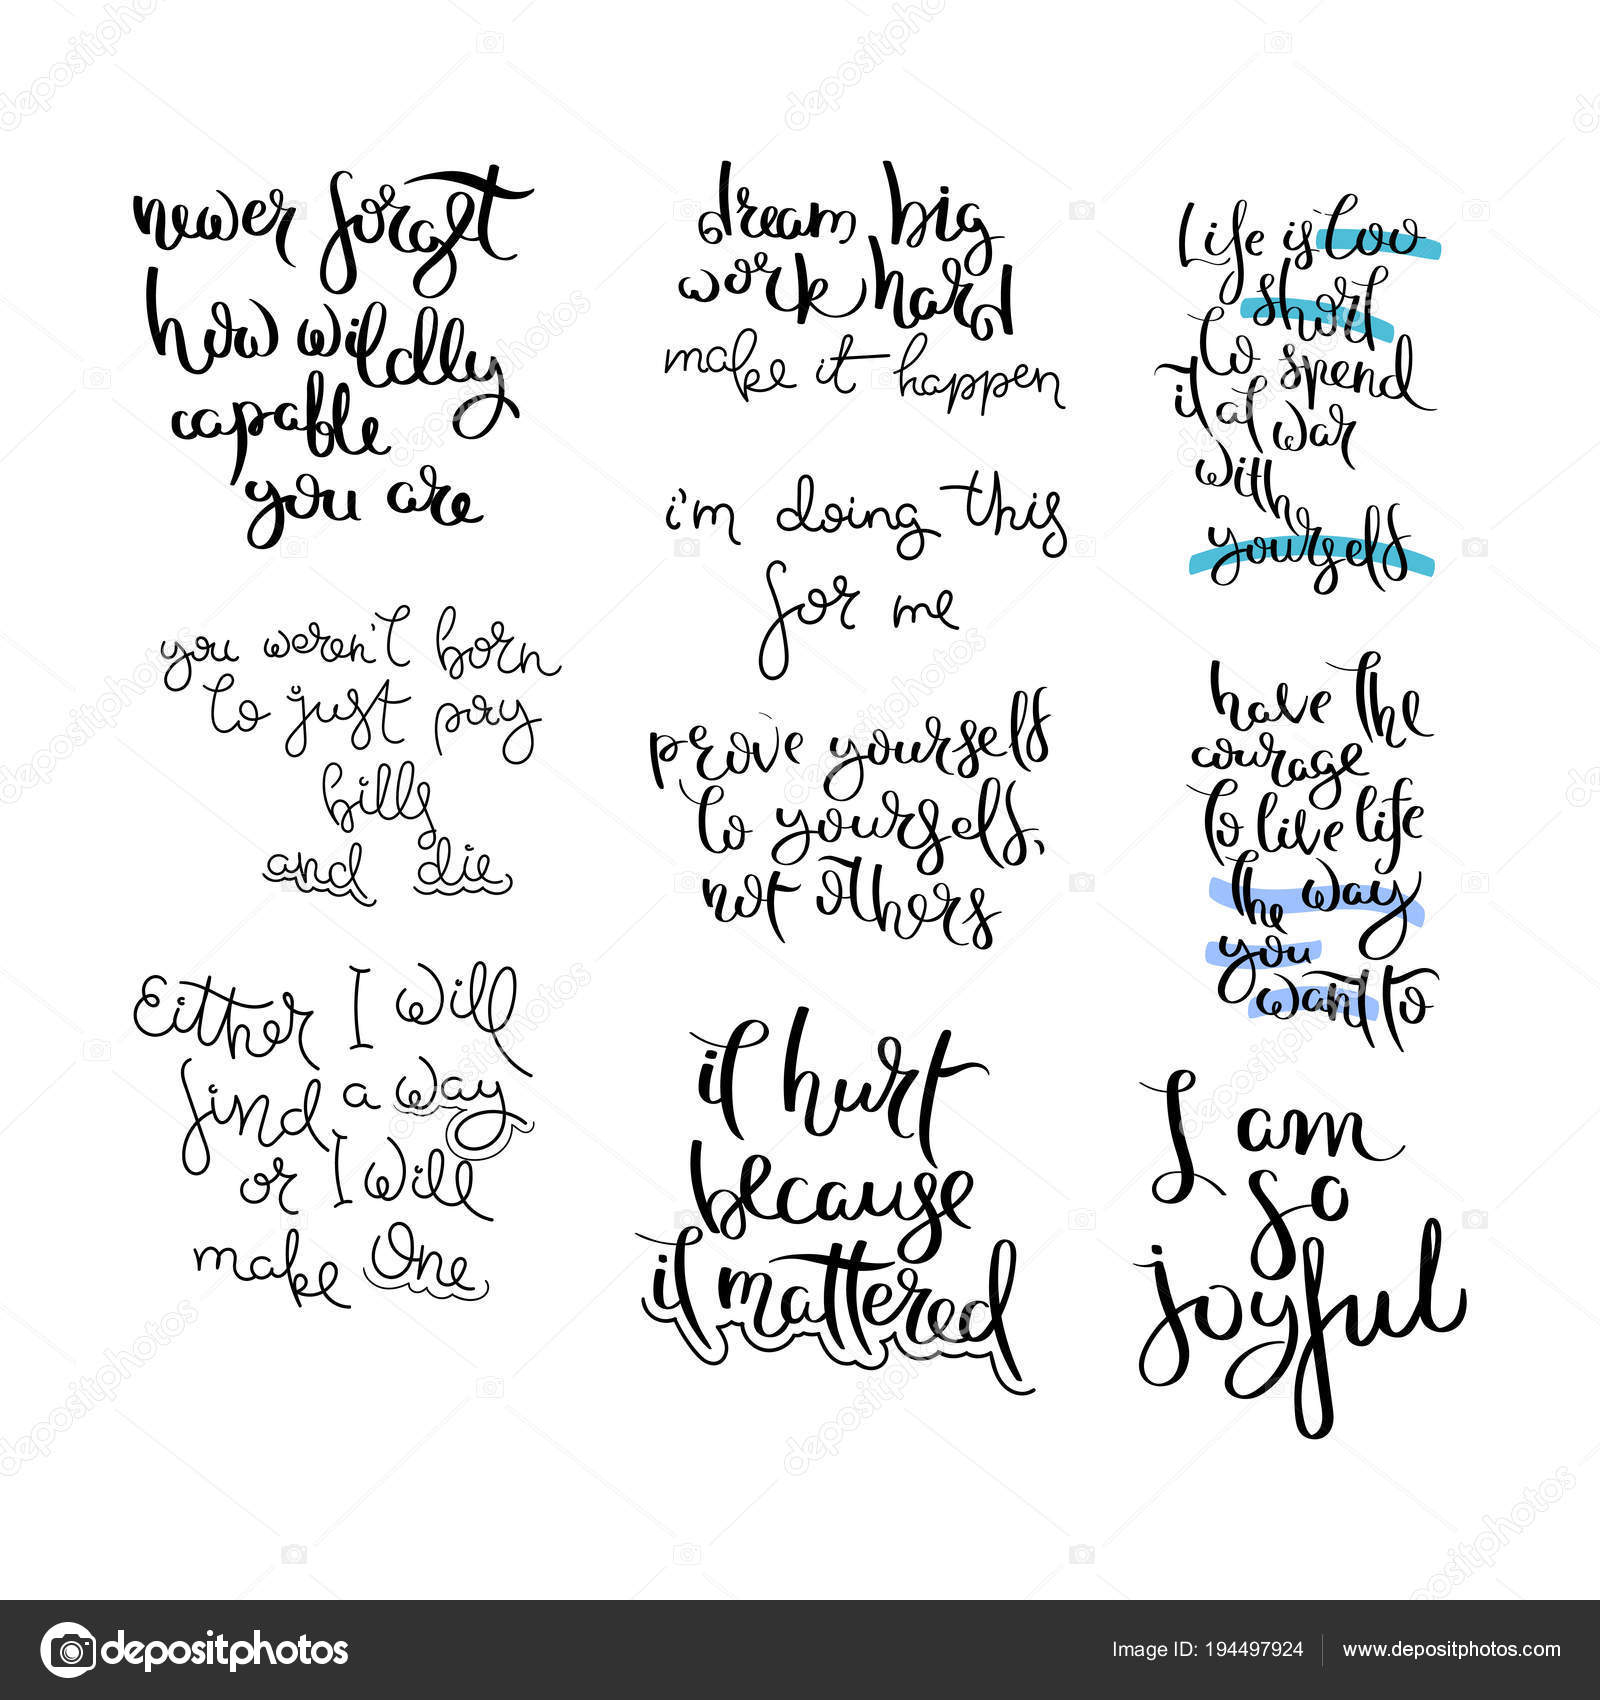 never forget
how wildly
capable
you are
you weren't born
to just pay
bills
and die
Either I will
find a way
or I will
make One
dream big
work hard
make it happen
i'm doing this
for me
prove yourself
to yourself,
not others
it hurt
because
it mattered
Life is too
short
to spend
it at war
with
yourself
have the
courage
to live life
the way
you
want to
I am
so
joyful
depositphotos
Image ID: 194497924 www.depositphotos.com